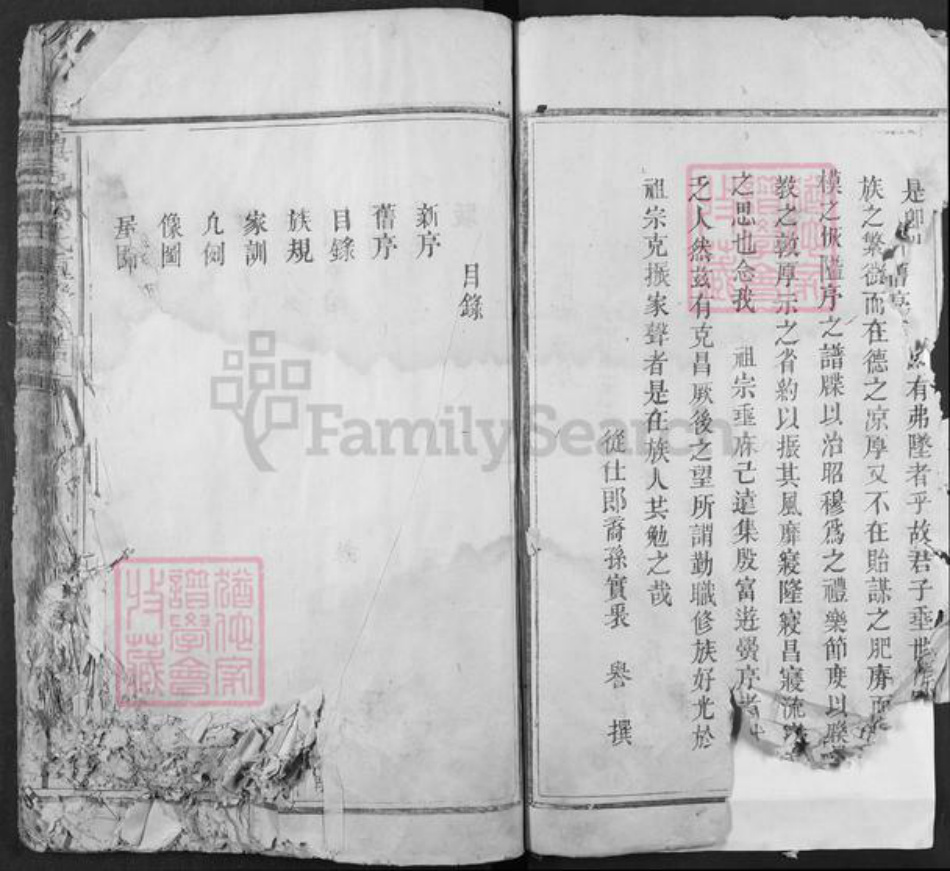 有弗墜者乎故君子垂世
族之繁微而在德之涼厚又不在貽謀之肥瘠而
模之恢隘序之譜牒以治昭穆爲之禮樂節度以聯
教之敦厚示之省約以振其風靡寖隆寖昌寖流
之思也念我 祖宗垂庥已遠集殷富遊黌序者
乏人然茲有克昌厥後之望所謂勤職修族好光於
祖宗克振家聲者是在族人其勉之哉
從仕郎裔孫實 譽 撰
目錄
新序
舊序
目錄
族規
家訓
凡例
像圖
FamilySearch
猶他家譜學會收藏
猶他家譜學會收藏